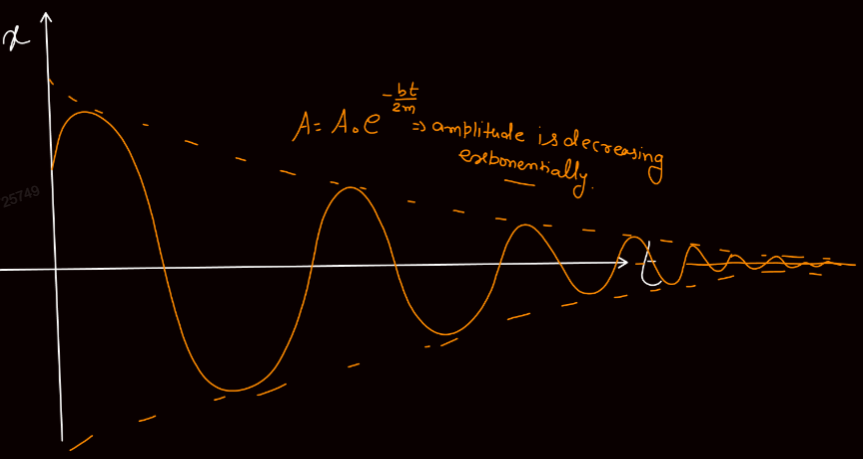 x
A = A₀e^(-bt/2m) ⇒ amplitude is decreasing
exponentially.
25749
t